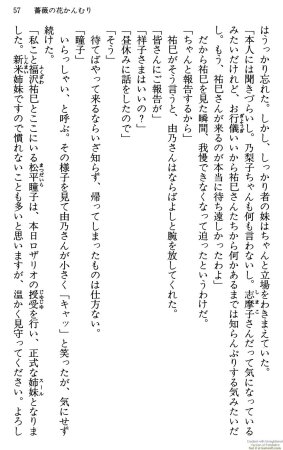 57　薔薇の花かんむり
はうっかり忘れた。しかし、しっかり者の妹はちゃんと立場をわきまえていた。
「本人には聞きづらいし。乃梨子ちゃんも何も言わないし。志摩子さんだって気になっている
みたいだけれど、お行儀いいから祐巳さんたちから何かあるまでは知らんぷりする気みたいだ
し。もう、祐巳さんが来るのが本当に待ち遠しかったわよ」
だから祐巳を見た瞬間、我慢できなくなって迫ったというわけだ。
「ちゃんと報告するから」
祐巳がそう言うと、由乃さんはならばよしと腕を放してくれた。
「皆さんにご報告が」
「祥子さまはいいの？」
「昼休みに話をしたので」
「そう」
待てばやって来るならいざ知らず、帰ってしまったものは仕方ない。
「瞳子」
いらっしゃい、と呼ぶ。その様子を見て由乃さんが小さく「キャッ」と笑ったが、気にせず
続けた。
「私こと福沢祐巳とここにいる松平瞳子は、本日ロザリオの授受を行い、正式な姉妹となりま
した。新米姉妹ですので慣れないことも多いと思いますが、温かく見守ってください。よろし